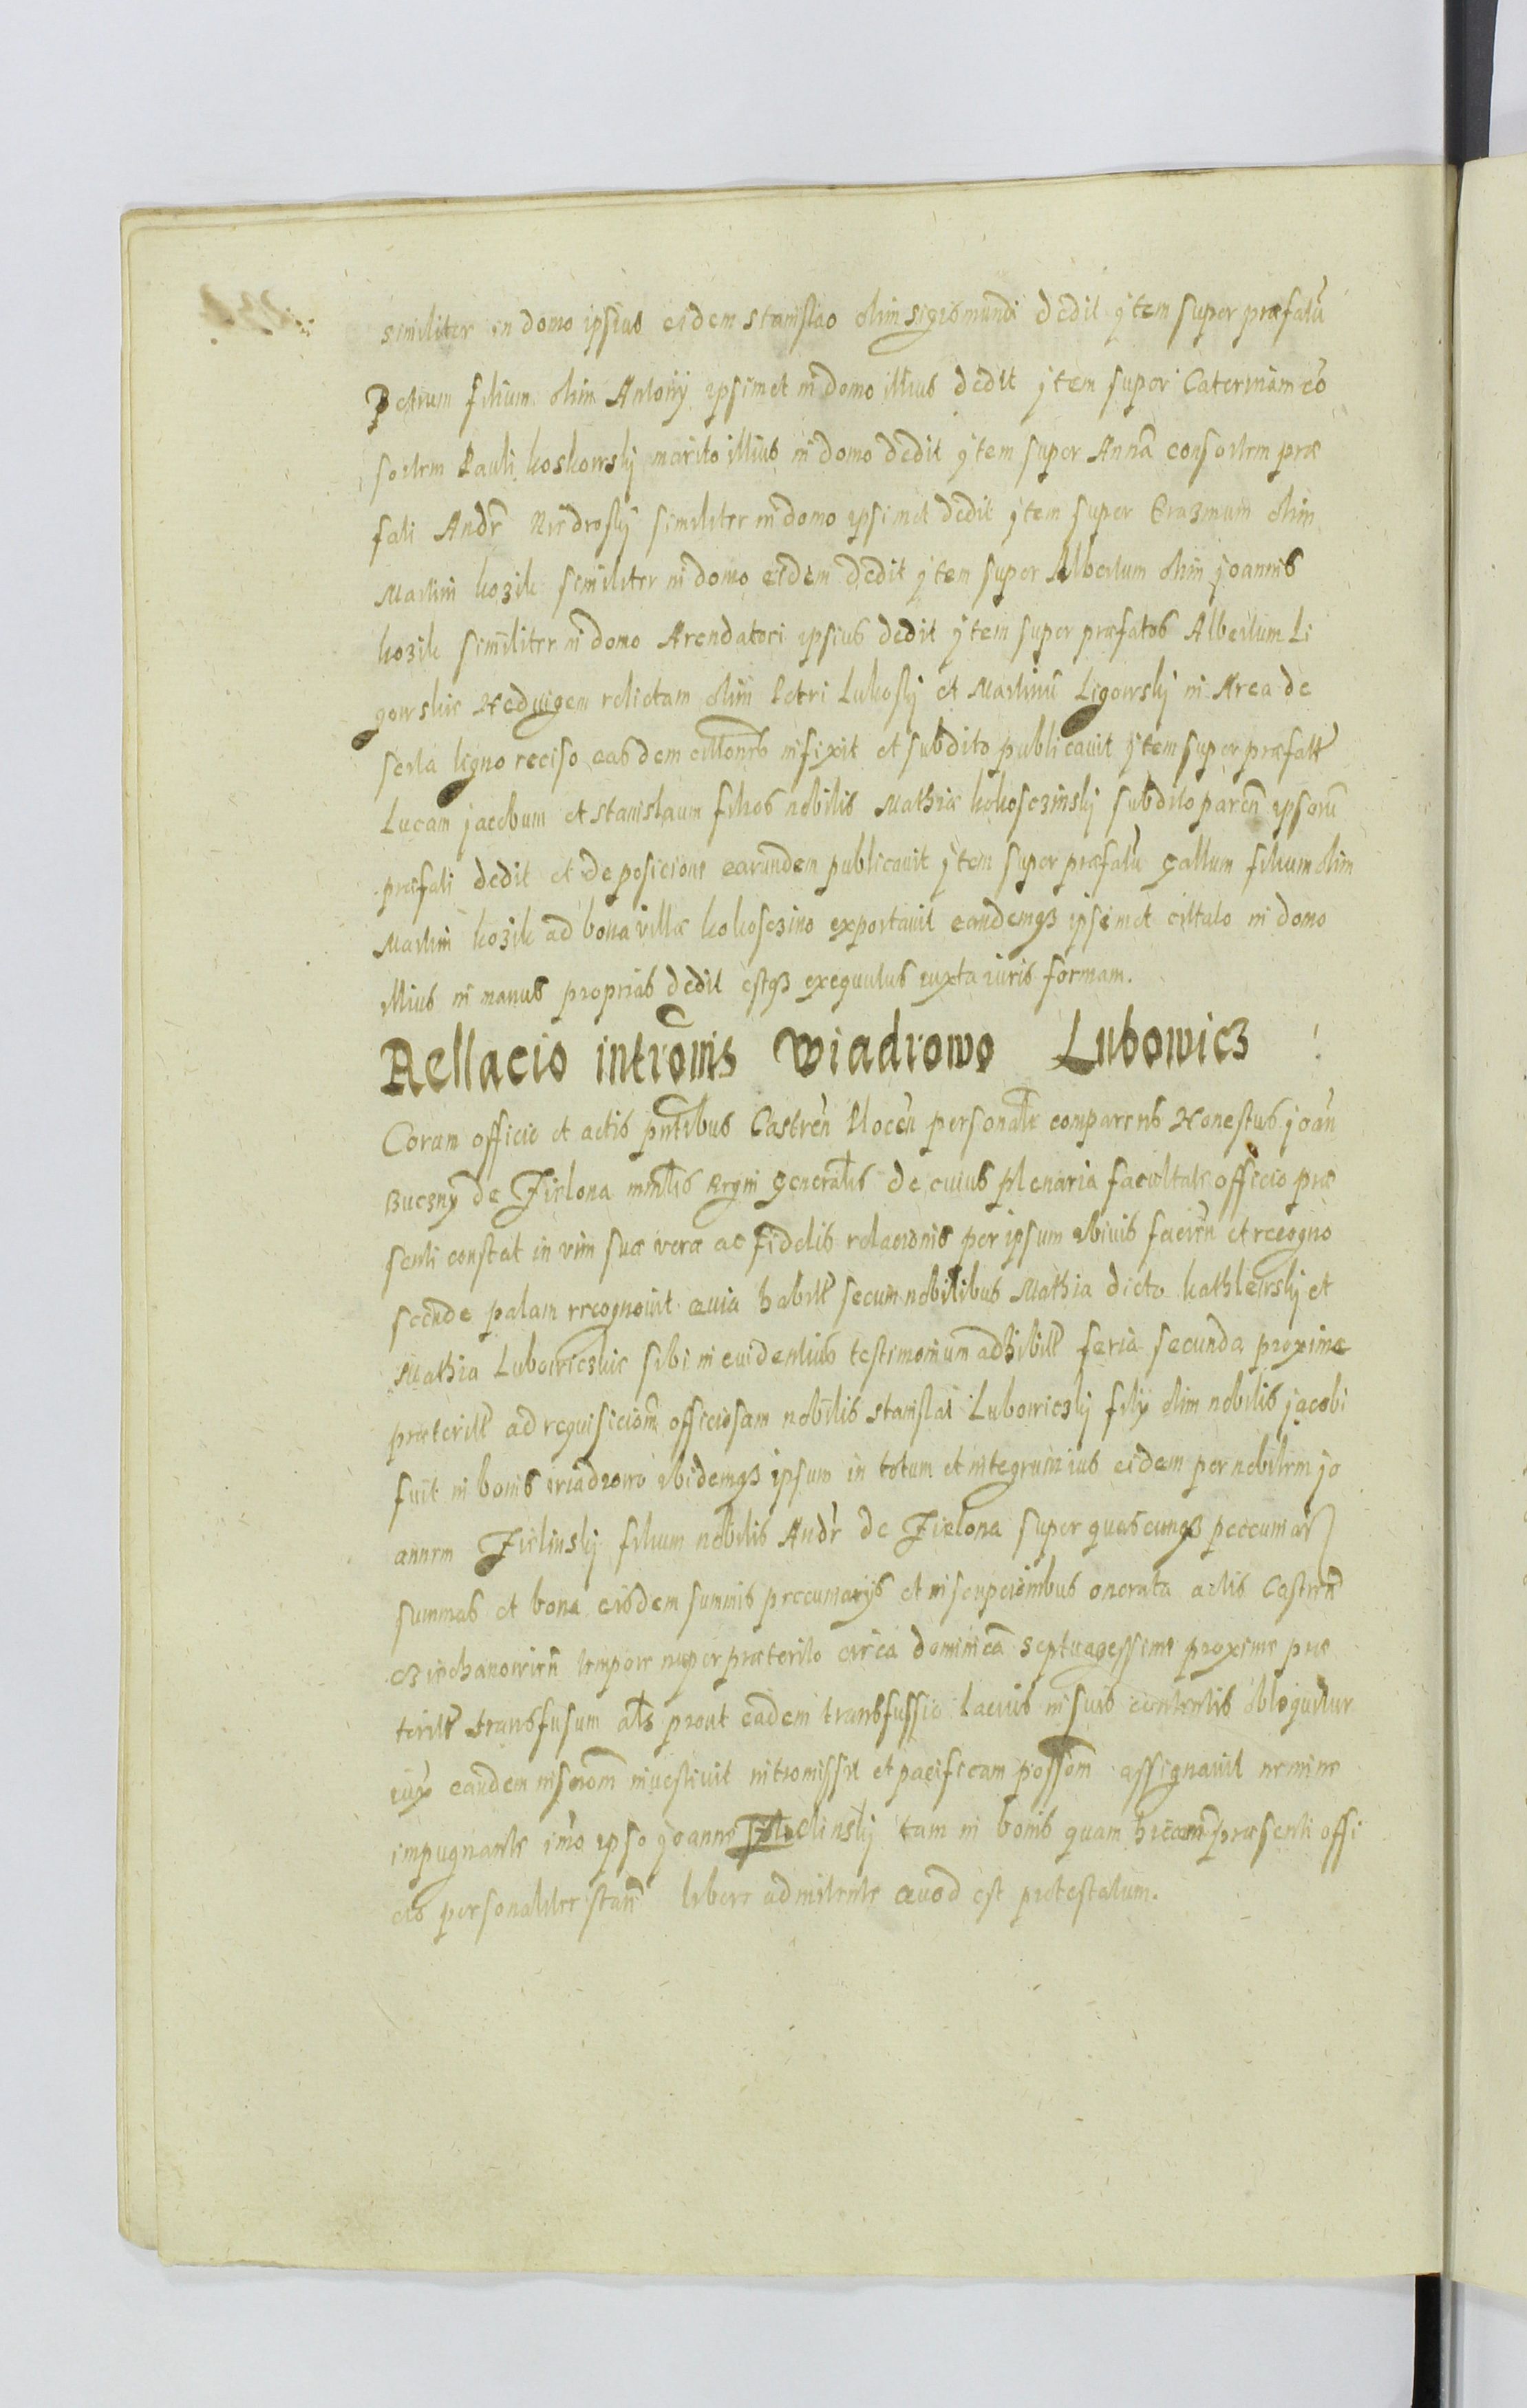 similiter in domo ipsius eidem stanislao olim sigismundi dedit ytem super præfatū
Petrum filium olim Antonij ipsimet in domo illius dedit ytem super Caterinam cō
sortem Pauli koskowskj marito illius in domo dedit ytem super Annā consortem præ
fati Andr similiter in domo ipsimet dedit ytem super Erazmum olim
Martini kozik similiter in domo eidem dedit ytem super Albertum olim joannis
kozik similiter in domo Arendatori ipsius dedit ytem super præfatos Albertum Li
gowskie Hedvigem relictam olim Petri Lukoskj et Martinū Ligowskj in Area de
serta ligno reciso easdem infixit et subdito publicavit ytem super præfatt
Lucam jacobum et stanislaum filios nobilis Mathiæ kokosczinskj subdito paren ipsorū
præfati dedit et de posicione earundem publicavit ytem super præfatū gallum filium olim
Martini kozik ad bona villæ kokosczino exportavit eandemqz ipsimet citato in domo
illius in manus proprias dedit estqz exequutus iuxta iuris formam.
Rellacio intromis Wiadrowo Lubowicz
Coram officio et actis pntibus Castren Plocen personalr comparens Honestus joan
Buczny de Zielona mnlis Regni generalis de cuius plenaria facultate officio præ
senti constat in vim suæ veræ ac fidelis relacionis per ipsum ubiuis facien et recogno
scende palam recognovit quia habitt secum nobilibus Mathia dicto kathlewskj et
Mathia Lubowiczkie sibi in euidentius testimonium adhibitt feria secunda proxime
præteritt ad requisiciom officiosam nobilis stanislai Lubowiczkj filij olim nobilis jacobi
fuit in bonis wiadrowo ibidemqz ipsum in totum et integrum ius eidem per nobilem jo
annem Zielinskj filium nobilis Andr de Zielona super quascunqz peccuniar
summas et bona eisdem summis peccuniarijs et inscripcionibus onerata actis Castren
Cziechanowien tempore nuper præterito circa dominicā septuagessime proxime præ
teritt transfusum als prout eadem transfussio lacius in suis contentis obloquitur
iux eandem inscriom investivit intromissit et pacificam possem assignavit nemine
impugnante imo ipso joanne Zielinskj tam in bonis quam præsenti offi
cio personaliter stan libere admitente quod est protestatum.